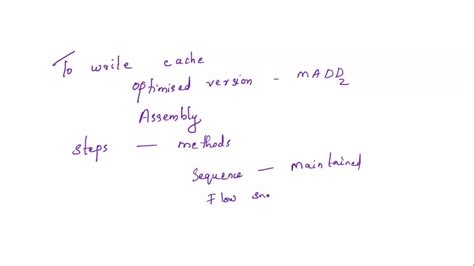 To write cache
optimised version - MADD2
Assembly
steps — methods
Sequence — Maintained
Flow